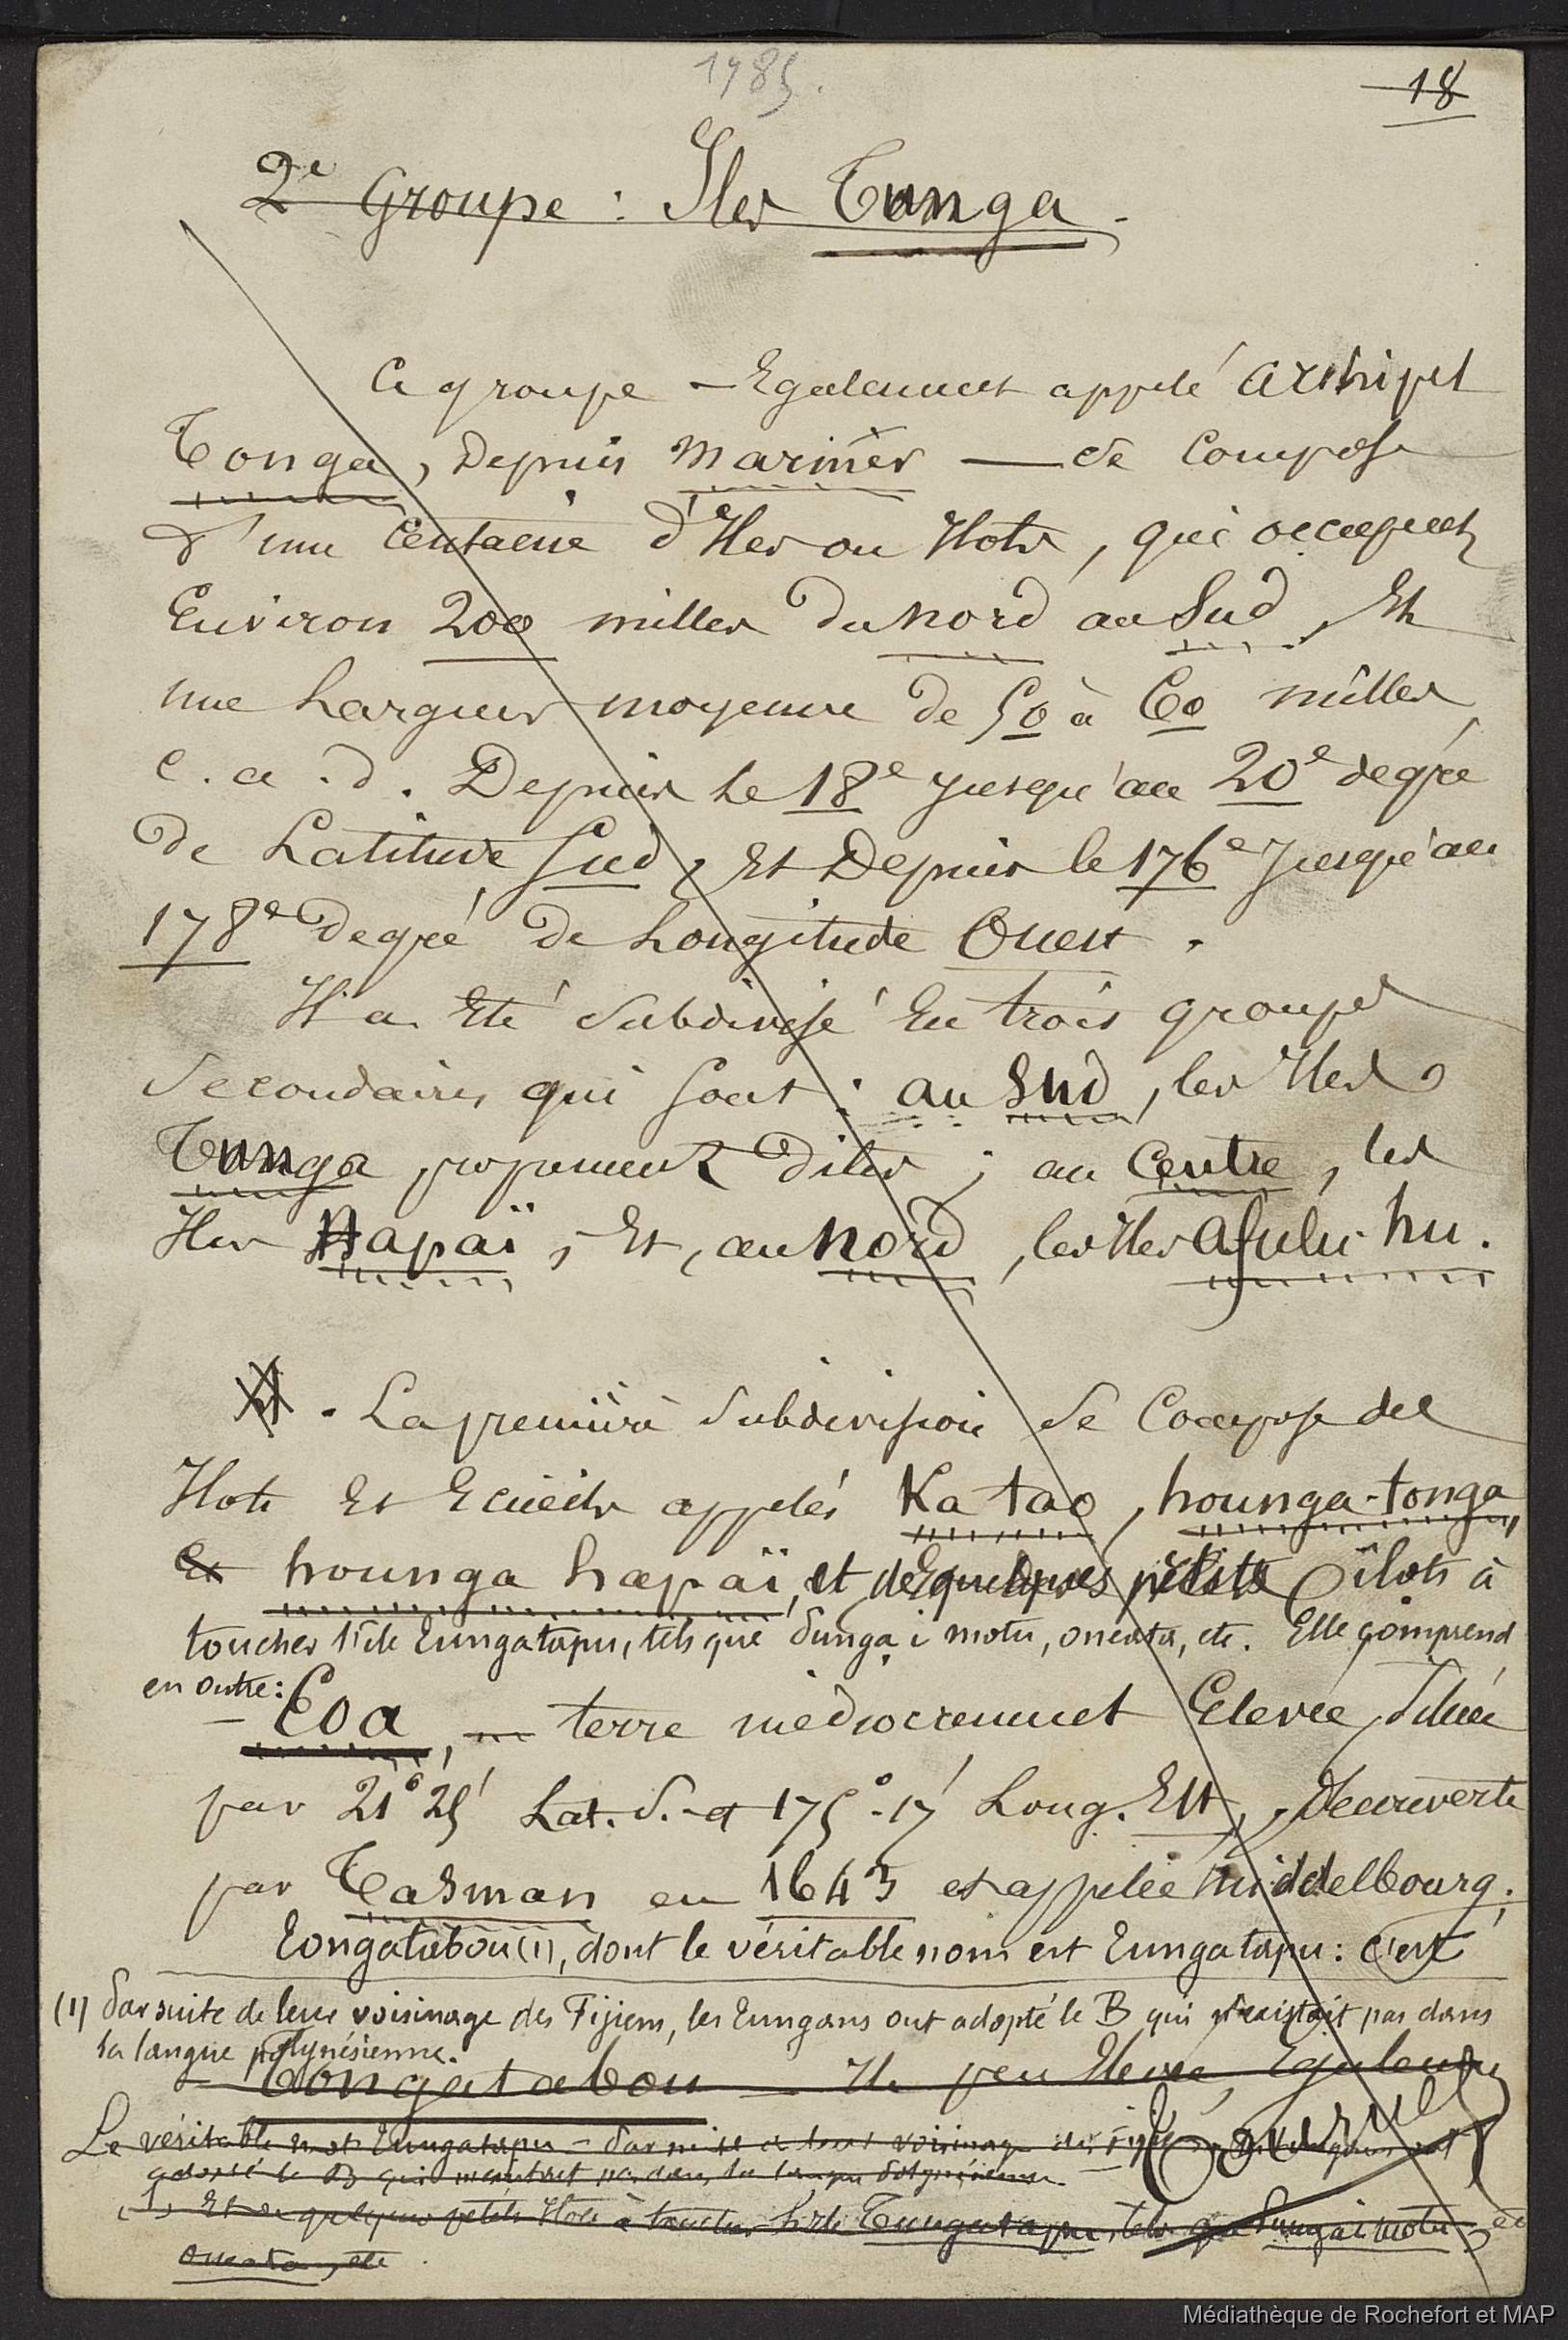 1785.
18
2e Groupe : Iles Tunga.
Ce groupe — Egalement appelé archipel
Tonga, Depuis Mariner — se compose
d'une centaine d'Iles ou Ilots, qui occupent
Environ 200 milles du nord au Sud, Et
une Largeur moyenne de 50 à 60 milles,
c. a. d. Depuis le 18e jusqu'au 20e degré
de Latitude Sud, Et Depuis le 176e jusqu'au
178e degré de Longitude Ouest.
Il a Eté subdivisé En trois groupes
secondaires qui sont : au Sud, les Iles
Tunga proprement dites ; au Centre, les
Iles Hapaï ; Et, au nord, les Iles afulu-hu.
. La première subdivision se compose des
Ilots Et Ecueils appelés Ka tao, hounga-tonga,
Et hounga hapaï, et de quelques petits îlots à
toucher l'île Tungatapu, tels que Punga i motu, oneata, etc. Elle comprend
en outre :
Eoa, — terre médiocrement Elevée, située
par 21° 25' Lat. S. et 175°-17' Long. Est, découverte
par Tasman en 1643 et appelée Middelbourg ;
Tongatabou (1), dont le véritable nom est Tungatapu : c'est
(1) Par suite de leur voisinage des Fijiens, les Tungans ont adopté le B qui n'existait pas dans
la langue polynésienne.
Tongatabou — Ile peu Elevée, Egalement
Le véritable mot Tungatapu – Par suite de leur voisinage des Fijiens, les Tungans ont
adopté le B qui n'existait pas dans la langue Polynésienne.
(1) Et de quelques petits Ilots à toucher l'Ile Tungatapu, tels que Pungai motu, et
oneata, etc.
Médiathèque de Rochefort et MAP